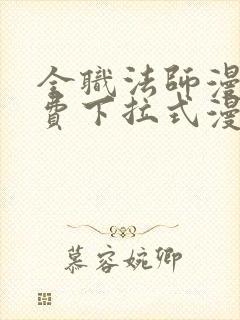 全職法師漫
費下拉式漫
慕容婉卿